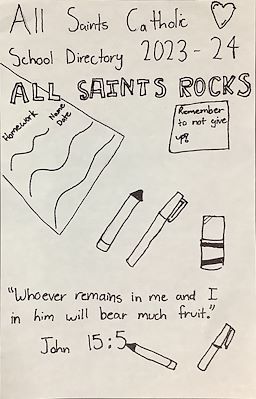 All Saints Catholic
School Directory 2023-24
ALL SAINTS ROCKS
Homework
Name
Date
Remember
to not give
up!
"Whoever remains in me and I
in him will bear much fruit."
John 15:5